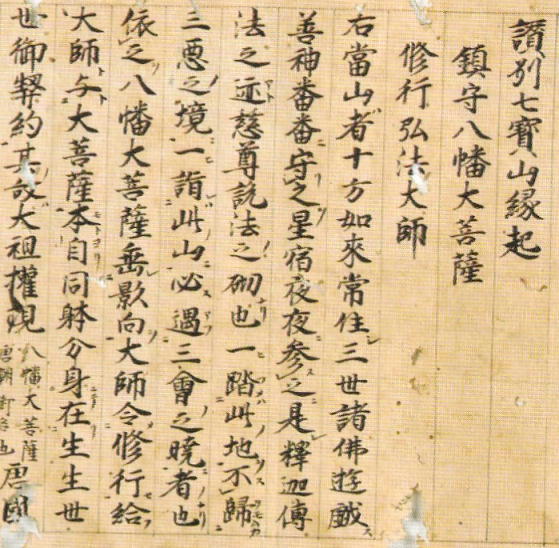 讃州七寶山縁起
鎮守八幡大菩薩
修行弘法大師
右當山者十方如來常住三世諸佛遊戯
善神番番守之星宿夜夜参之是釋迦傳
法之迹慈尊説法之砌也一踏此地不歸
三悪之境一詣此山必遇三會之暁者也
依之八幡大菩薩垂影向大師令修行給
大師与大菩薩本自同躰分身在生生世
世御契約其故大祖權現八幡大菩薩唐朝御名也唐國